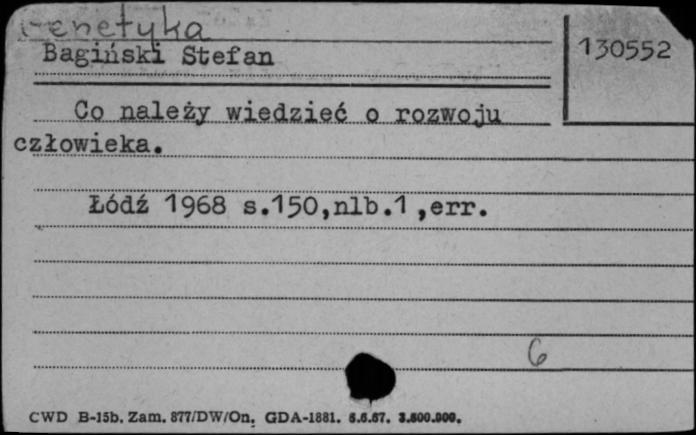 Genetyka
Bagiński Stefan
130552
Co należy wiedzieć o rozwoju
człowieka.
Łódź 1968 s.150,nlb.1,err.
6
CWD B-15b. Zam. 877/DW/On. GDA-1881. 6.6.67. 3.500.000.